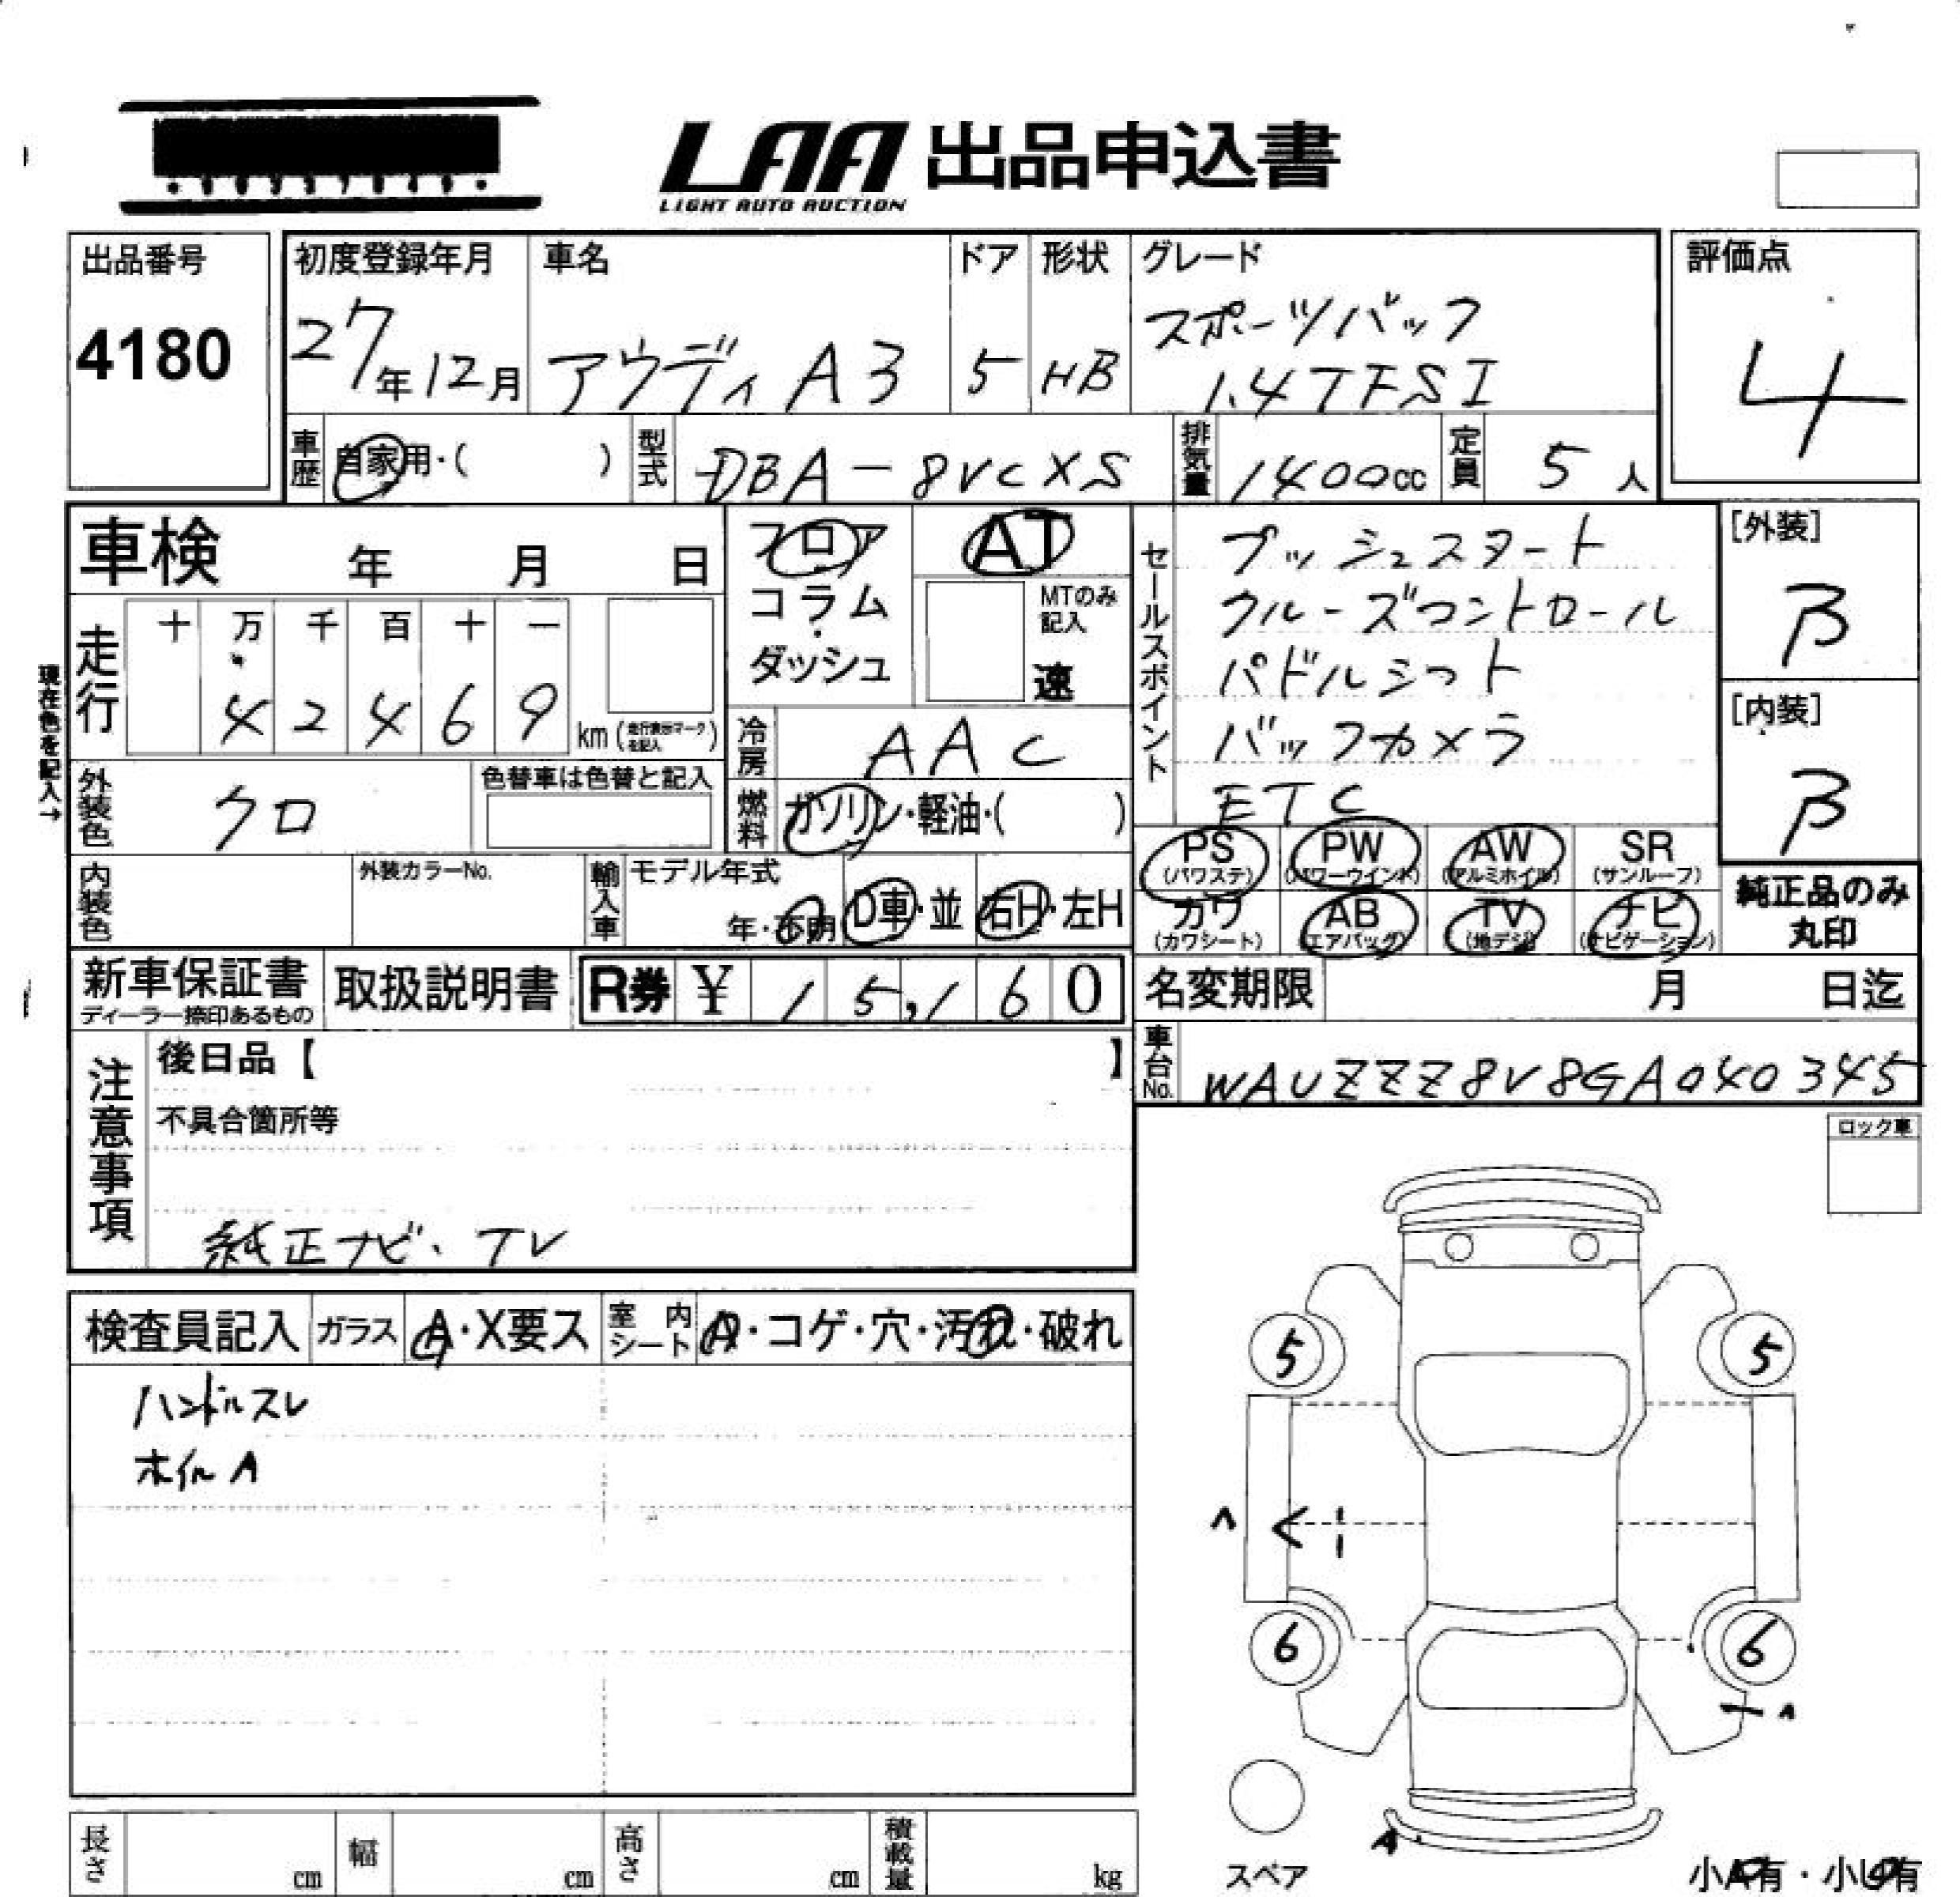 LAA 出品申込書
LIGHT AUTO AUCTION
出品番号
4180
初度登録年月
27年12月
車名
アウディ A3
ドア
5
形状
HB
グレード
スポーツバック
1.4TFSI
評価点
4
車歴
自家用・( )
型式
DBA-8VCXS
排気量
1400cc
定員
5人
車検 年 月 日
走行
十 万 千 百 十 一
4 2 4 6 9 km (走行表示マークを記入)
現在色を記入→
外装色
クロ
色替車は色替と記入
内装色
外装カラーNo.
輸入車
モデル年式
年・不明
D車・並
右H・左H
フロア
コラム
・
ダッシュ
AT
MTのみ
記入
速
冷房
AAC
燃料
ガソリン・軽油・( )
セールスポイント
プッシュスタート
クルーズコントロール
パドルシフト
バックカメラ
ETC
[外装]
B
[内装]
B
PS
(パワステ)
PW
(パワーウインド)
AW
(アルミホイル)
SR
(サンルーフ)
カワ
(カワシート)
AB
(エアバッグ)
TV
(地デジ)
ナビ
(ナビゲーション)
純正品のみ
丸印
新車保証書
ディーラー捺印あるもの
取扱説明書
R券 ¥ 15,160
名変期限 月 日迄
車台No.
WAUZZZ8V8GA040345
注意事項
後日品【 】
不具合箇所等
純正ナビ、TV
ロック車
検査員記入
ガラス
A・X要ス
室内シート
A・コゲ・穴・汚れ・破れ
ハンドルスレ
ホイルA
5
5
6
6
A
スペア
小A有・小U有
長さ cm
幅 cm
高さ cm
積載量 kg